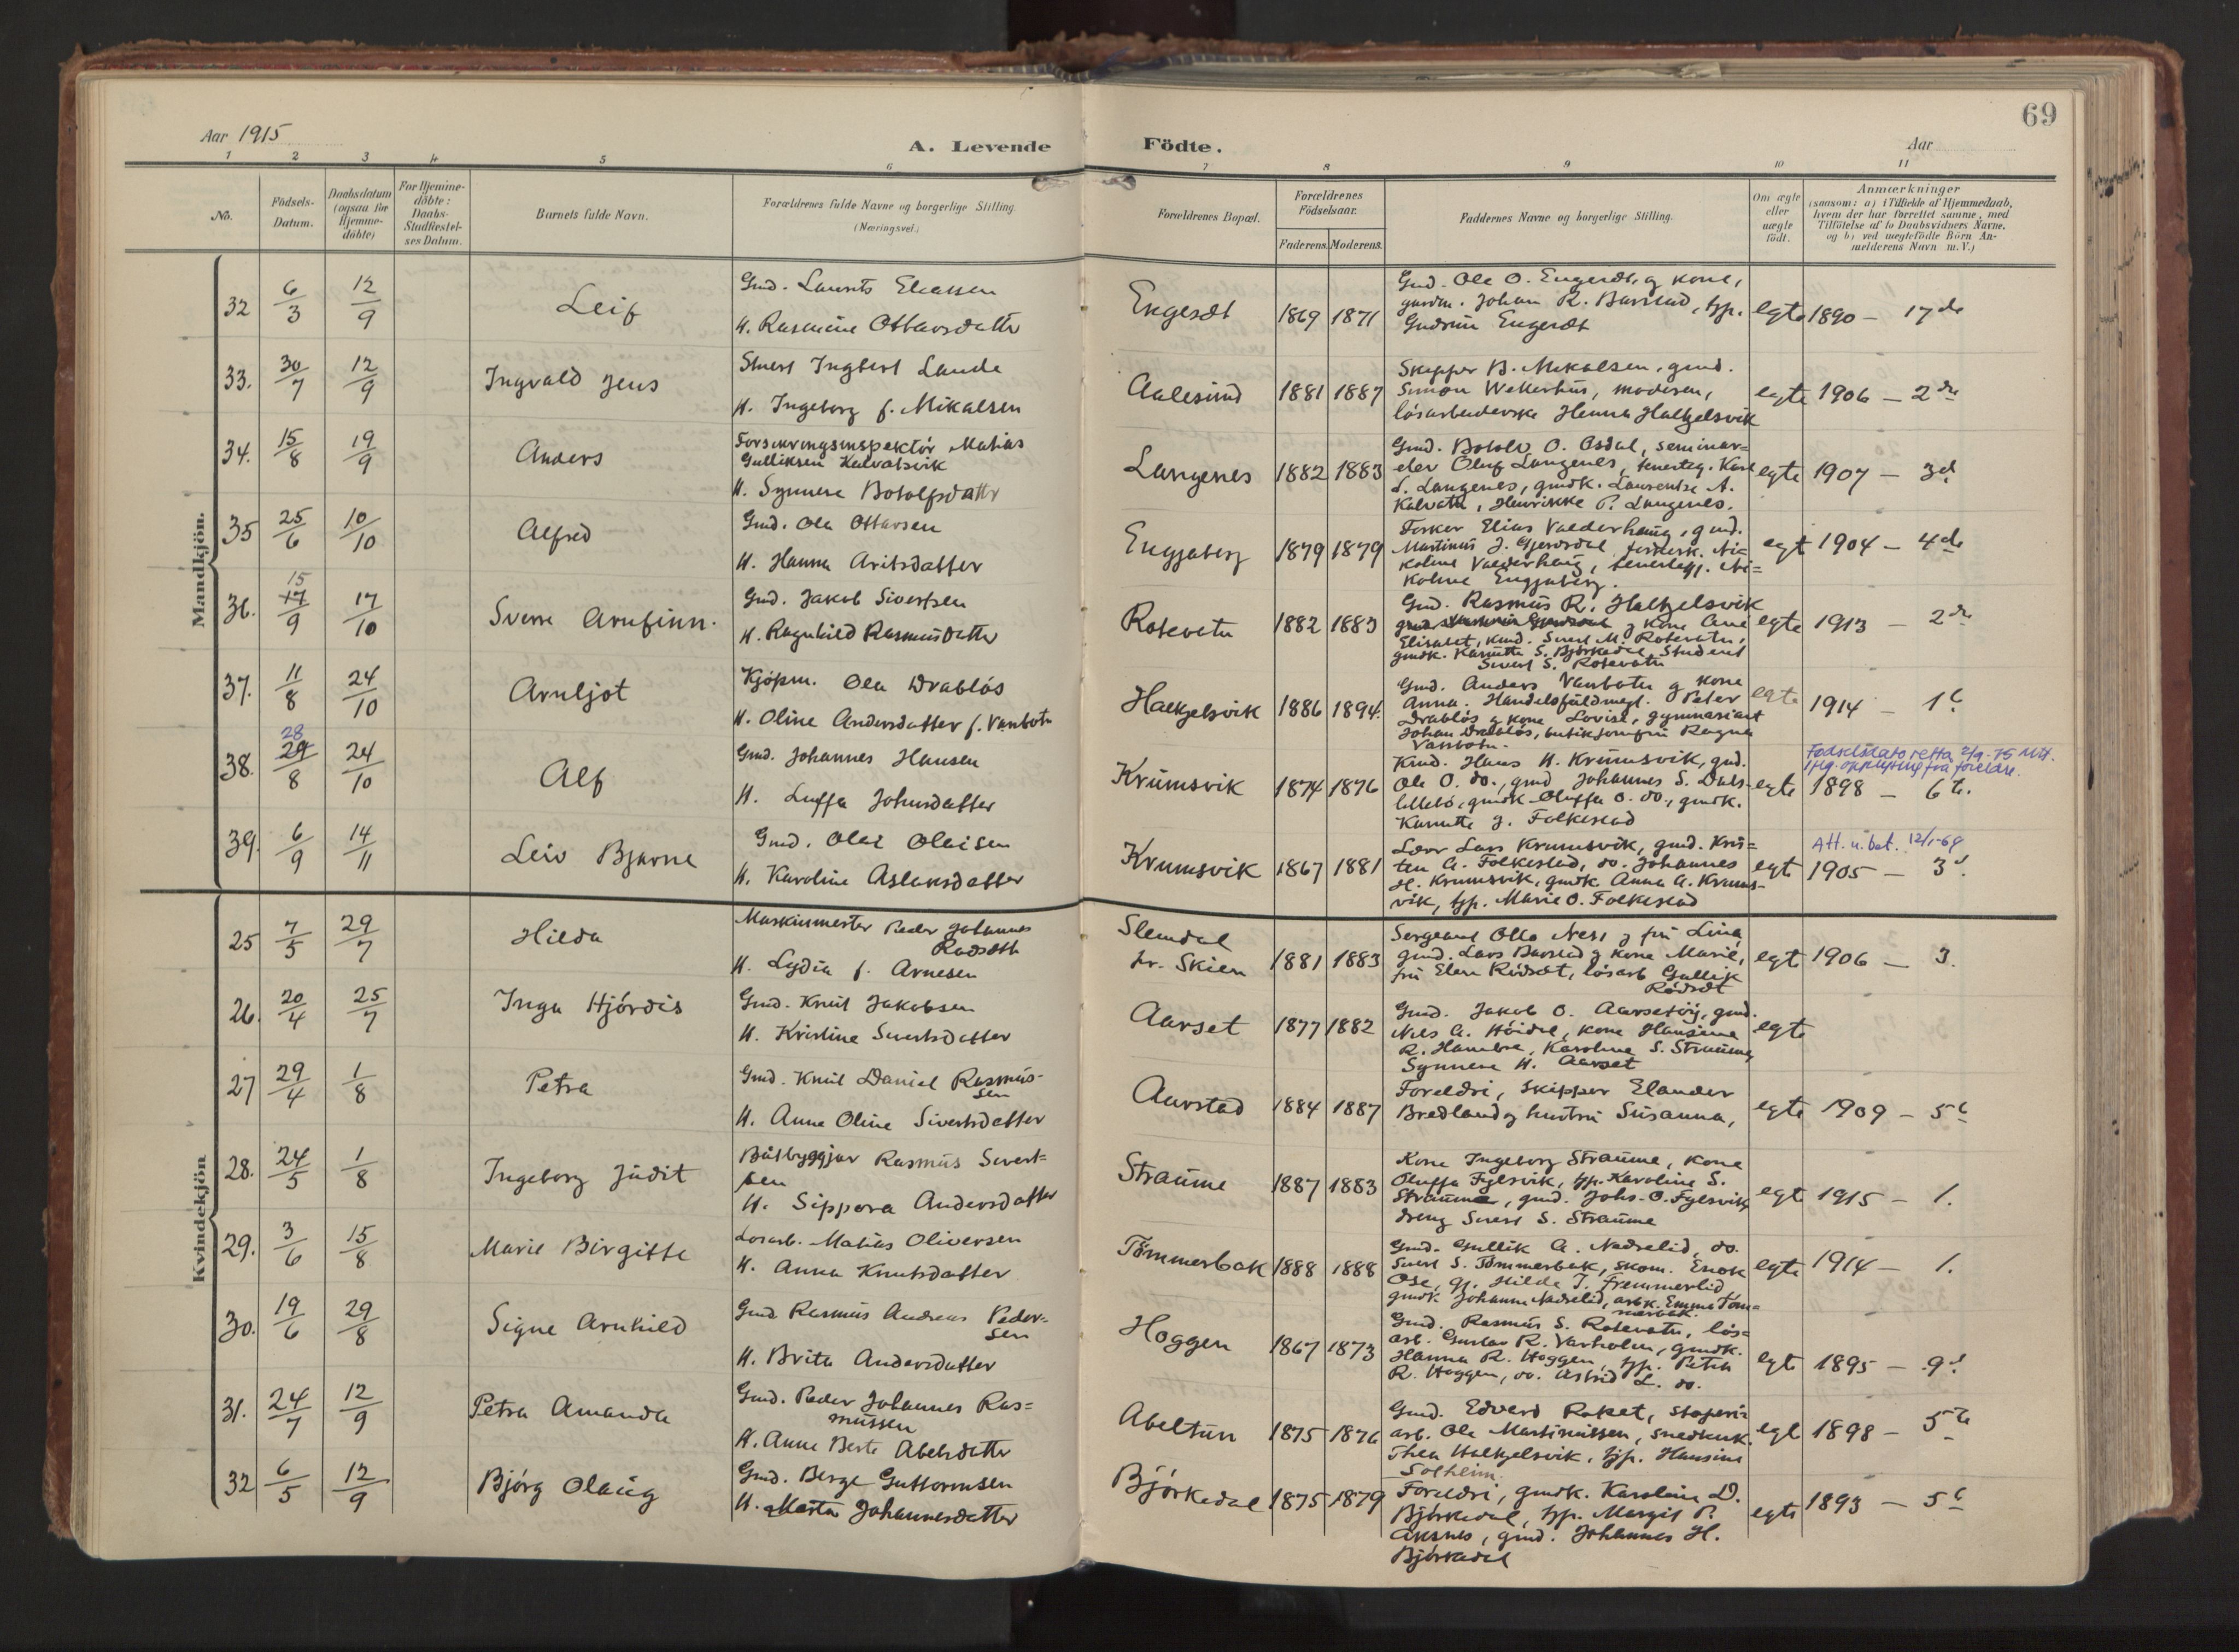 69
Aar 1915
A. Levende Födte.
Aar
1 2 3 4 5 6 7 8 9 10 11
No.
Födsels-Datum.
Daabsdatum (ogsaa for Hjemme-döbte)
For Hjemme-döbte: Daabs-Stadfæstel-ses Datum.
Barnets fulde Navn.
Forældrenes fulde Navne og borgerlige Stilling. (Næringsvei.)
Forældrenes Bopæl.
Forældrenes Födselsaar.
Faderens. Moderens.
Faddernes Navne og borgerlige Stilling.
Om ægte eller uægte födt.
Anmærkninger
(saasom: a) i Tilfælde af Hjemmedaab, hvem der har forrettet samme, med Tilföielse af to Daabsvidners Navne, og b) ved uægtefödte Börn An-melderens Navn m. V.)
Mandkjön.
32 6/3 12/9 Leif
Gmd. Laurits Eliassen
H. Rasmine Ottarsdatter
Engeset 1869 1871
Gmd. Ole O. Engeset, og kone,
gmd. Johan R. Barstad, tjp.
Gudrun Engeset
egte 1890 – 17de
33. 30/7 12/9 Ingvald Jens
Stuert Ingbert Lande
H. Ingeborg f. Mikalsen
Aalesund 1881 1887
Skipper B. Mikalsen, gmd.
Simon Wetterhus, moderen,
lösarbeiderske Henna Halkjelsvik
egte 1906 – 2de
34. 15/8 19/9 Anders
Forsikringsinspektör Matias
Gulliksen Kalvatsvik
H. Synnøve Botolfsdatter
Langenes 1882 1883
Gmd. Botolv O. Osdal, seminar=
elev Oluf Langenes, Karl
S. Langenes, gmdk. Laurentse A.
Kalvatn, Henrikke P. Langenes.
egte 1907 – 3d
35 25/6 10/10 Alfred
Gmd. Ole Ottarsen
H. Hanna Aritsdatter
Engjaberg 1879 1879
Fisker Elias Valderhaug, gmd.
Martinus J. Gjersdal, Ni=
koline Valderhaug, Ni=
koline Engjaberg.
egt 1904 – 4de
36. 15 17/9 17/10 Sverre Arnfinn.
Gmd. Jakob Sivertsen
H. Ragnhild Rasmusdatter
Rotevatn 1882 1883
Gmd. Rasmus R. Halkjelsvik
g kone Ane
Elisabet, kmd. Sivert M. Rotevatn,
gmdk. Karnitte S. Björkedal, Student
Sivert S. Rotevatn
egte 1913 – 2de
37. 11/8 24/10 Arnljot
Kjöpm. Ole Drablös
H. Oline Andersdatter f. Vanbotn
Halkjelsvik 1886 1894.
Gmd. Anders Vanbotn g kone
Anna. Handelsfuldmegt. Peter
Drablös g kone Lovise, gymnasiast
Johan Drablös, butikjomfru Ragna
Vanbotn.
egte 1914 – 1.
38. 28 29/8 24/10 Alf
Gmd. Johannes Hansen
H. Luffa Johnsdatter
Krumsvik 1874 1876
Kmd. Hans H. Krumsvik, gmd.
Ole O. do., gmd Johannes S. Dals-
lillebö, gmdk. Oluffa O. do, gmdk.
Karnitte J. Folkestad
egte 1898 – 6te.
Fødselsdato retta 2/9-75
opplysning frå foreldre.
39. 6/9 14/11 Leiv Bjarne
Gmd. Olai Olaisen
H. Karoline Aslaksdatter
Krumsvik 1867 1881
Lærer Lars Krumsvik, gmd. Kris=
ten A. Folkestad, do. Johannes
H. Krumsvik, gmdk Anna A. Krums-
vik, tjp. Marie O. Folkestad
egt 1905 – 3d.
Att. u. bet. 12/1-69
Kvindekjön
25 7/5 29/7 Hilda
Maskinmester Peder Johannes
Rødseth
H. Lydia f. Arnesen
Slemdal
pr. Skien 1881 1883
Sergeant Otto Ness g fru Lina,
gmd. Lars Barstad g kone Marie,
fru Elen Rödset, lösarb Gullik
Rödset
egt 1906 – 3.
26. 20/4 25/7 Inga Hjördis
Gmd. Knut Jakobsen
H. Kristine Sivertsdatter
Aarset 1877 1882
Gmd. Jakob O. Aarsetöy, gmd.
Nils A. Höidal, kone Hansine
R. Hambre, Karoline S. Straume,
Synnøve H. Aarset
egte
27 29/4 1/8 Petra
Gmd. Knut Daniel Rasmus-
sen
H. Anne Oline Sivertsdatter
Aurstad 1884 1887
Foreldri, skipper Elander
Bredland g hustru Susanna,
egte 1909 – 5.
28. 24/5 1/8 Ingeborg Judit
Båtbyggjar Rasmus Sivert=
sen
H. Sippora Andersdatter
Straume 1887 1883
Kone Ingeborg Straume, kone
Oluffa Fylsvik, tjp. Karoline S.
Straume, gmd. Johs. O. Fylsvik,
dreng Sivert S. Straume
egt 1915 – 1.
29. 3/6 15/8 Marie Birgitte
Losarb. Matias Oliversen
H. Anna Knutsdatter
Tömmerbak 1888 1888
Gmd. Gullik A. Nadselid, do.
Sivert S. Tömmerbak, skom. Enok
Ose, tjp. Hilda J. Fremmerlid
gmdk Johanne Nadselid, arbk. Emma Töm=
merbak.
egte 1914 – 1.
30. 19/6 29/8 Signe Arnhild
Gmd Rasmus Andreas Peder-
sen
H. Brita Andersdatter
Hoggen 1867 1873
Gmd. Rasmus S. Rotevatn, lös=
arb. Gustav R. Varholm, gmdk.
Hanna R. Hoggen, tjp. Petra
R. Hoggen, do. Astrid L. do.
egt 1895 – 9d.
31. 24/7 12/9 Petra Amanda
Gmd. Peder Johannes Ras=
mussen
H. Anne Berte Abelsdatter
Abeltun 1875 1876
Gmd. Edvard Roket, støperi=
arb. Ole Martinussen, snedkerk.
Thea Halkjelsvik, tjp. Hansine
Solheim.
egt 1898 – 5te
32 6/5 12/9 Björg Olaug
Gmd. Berge Guttormsen
H. Marta Johannesdatter
Björkedal 1875 1879
Foreldri, gmdk. Karoline D.
Björkedal, tjp. Margit P.
Aksnes, gmd. Johannes H.
Björkedal
egte 1893 – 5.